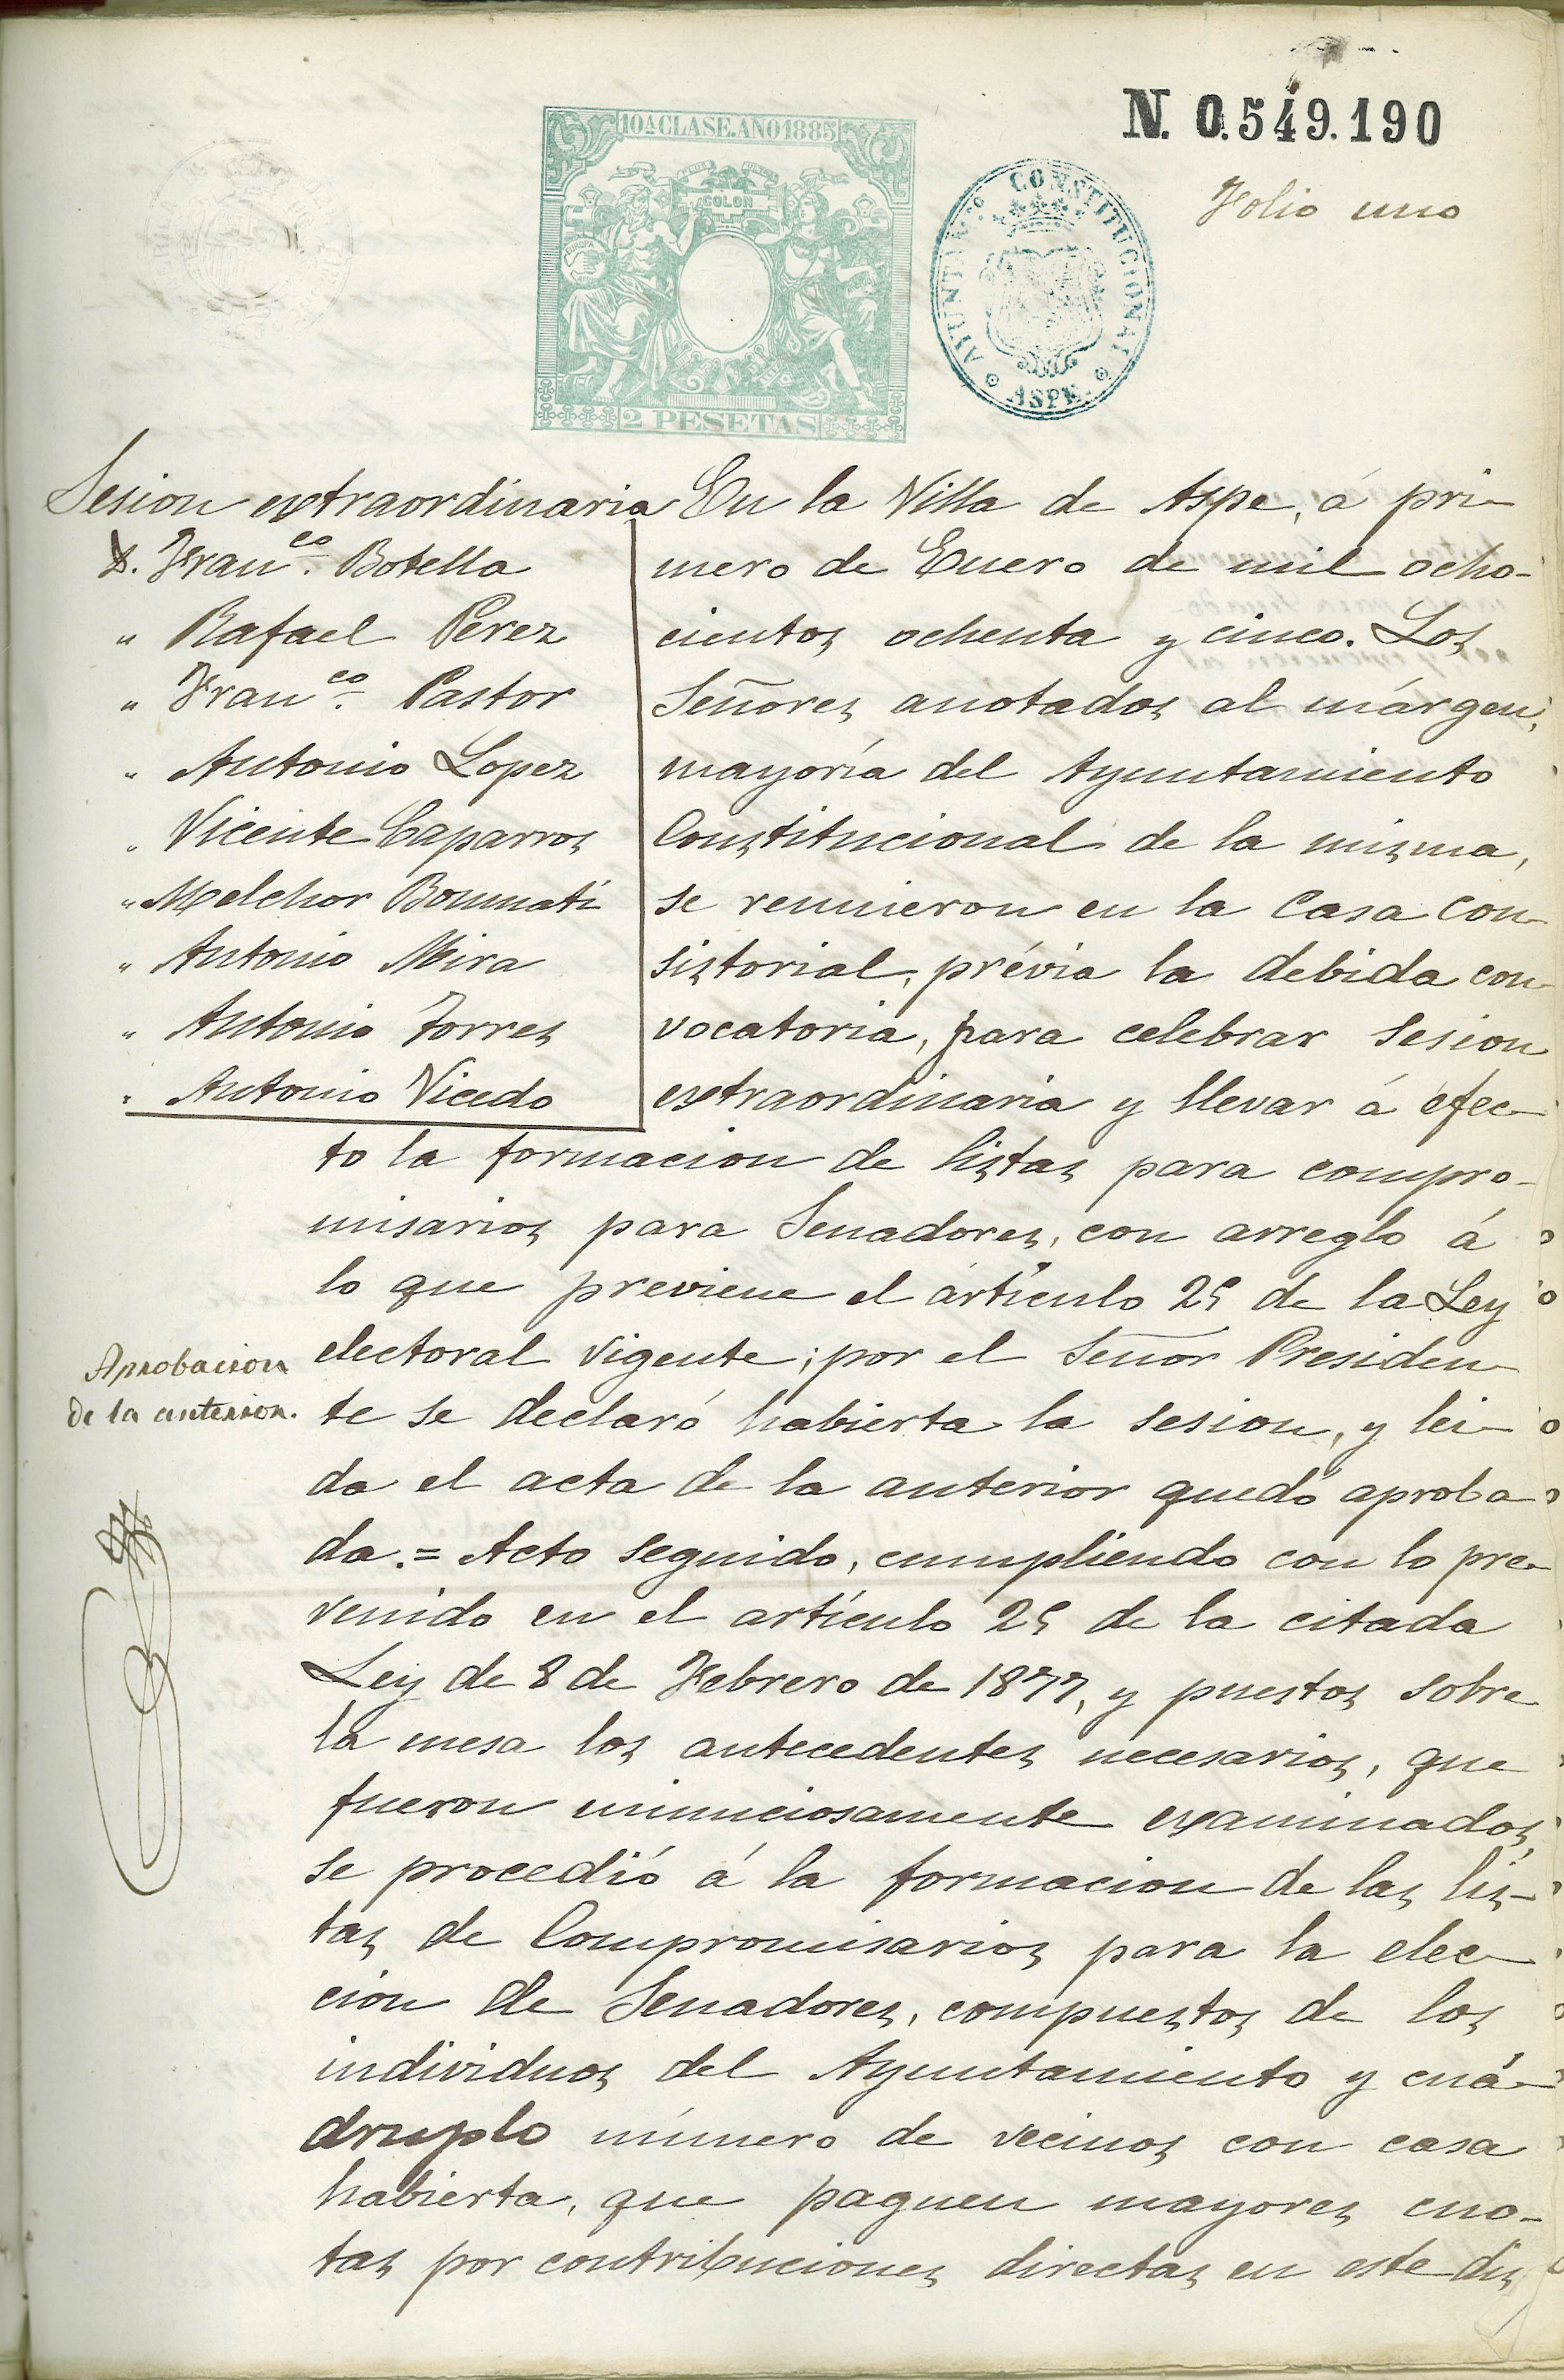 N. 0.549.190
10ª CLASE. AÑO 1885
COLON
EUROPA
2 PESETAS
AYUNTAM.TO CONSTITUCIONAL
ASPE
Folio uno
Sesion extraordinaria
D. Fran.co Botella
" Rafael Perez
" Fran.co Pastor
" Antonio Lopez
" Vicente Caparros
" Melchor Bonmati
" Antonio Mira
" Antonio Torres
" Antonio Vicedo
En la Villa de Aspe, á pri-
mero de Enero de mil ocho-
cientos ochenta y cinco. Los
Señores anotados al márgen,
mayoría del Ayuntamiento
Constitucional de la misma,
se reunieron en la Casa con-
sistorial, prévia la debida con-
vocatoria, para celebrar sesion
extraordinaria y llevar á efec-
to la formacion de listas para compro-
misarios para Senadores, con arreglo á
lo que previene el artículo 25 de la Ley
electoral vigente; por el Señor Presiden-
te se declaró habierta la sesion, y lei-
da el acta de la anterior quedó aproba-
da. = Acto seguido, cumpliendo con lo pre-
venido en el artículo 25 de la citada
Ley de 8 de Febrero de 1877, y puestos sobre
la mesa los antecedentes necesarios, que
fueron minuciosamente examinados,
se procedió á la formacion de las lis-
tas de Compromisarios para la elec-
cion de Senadores, compuestos de los
individuos del Ayuntamiento y cuá-
druplo número de vecinos con casa
habierta, que paguen mayores cuo-
tas por contribuciones directas en este dis
Aprobacion
de la anterior.